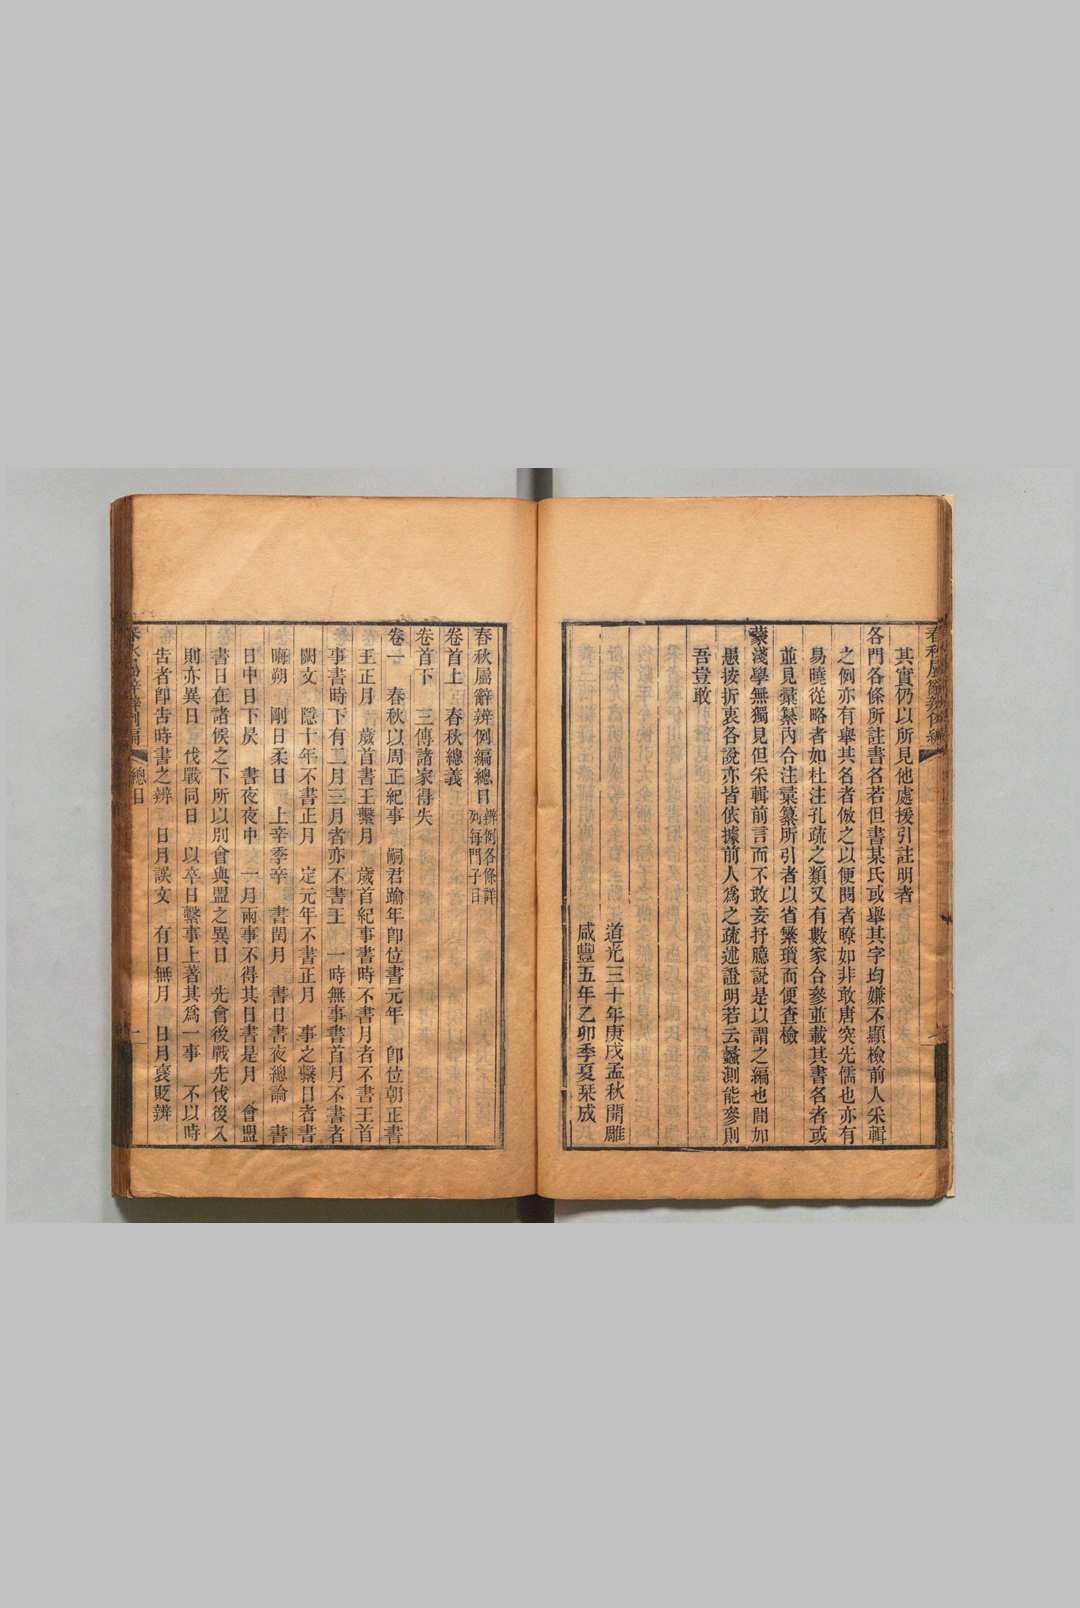 其實仍以所見他處援引註明者
各門各條所註書名若但書某氏或舉其字均嫌不顯檢前人采輯
之例亦有舉其名者倣之以便閱者瞭如非敢唐突先儒也亦有
易曉從略者如杜注孔疏之類又有數家合參並載其書名者或
並見彙纂內合注彙纂所引者以省繁瑣而便查檢
蒙淺學無獨見但采輯前言而不敢妄抒臆說是以謂之編也間如
愚按折衷各說亦皆依據前人為之疏述證明若云蠡測能參則
吾豈敢
道光三十年庚戌孟秋開雕
咸豐五年乙卯季夏栞成
春秋屬辭辨例編總目 辨例各條詳
列每門子目
卷首上 春秋總義
卷首下 三傳諸家得失
卷一 春秋以周正紀事 嗣君踰年卽位書元年 卽位朝正書
王正月 歲首書王繫月 歲首紀事書時不書月者不書王首
事書時下有二月三月者亦不書王 一時無事書首月不書者
闕文 隱十年不書正月 定元年不書正月 事之繫日者書
晦朔 剛日柔日 上辛季辛 書閏月 書日書夜總論 書
日中日下昃 書夜夜中 一月兩事不得其日書是月 會盟
書日在諸侯之下所以別會與盟之異日 先會後戰先伐後入
則亦異日 伐戰同日 以卒日繫事上著其為一事 不以時
告者卽告時書之辨 日月誤文 有日無月 日月褒貶辨
春秋屬辭辨例編 總目 一